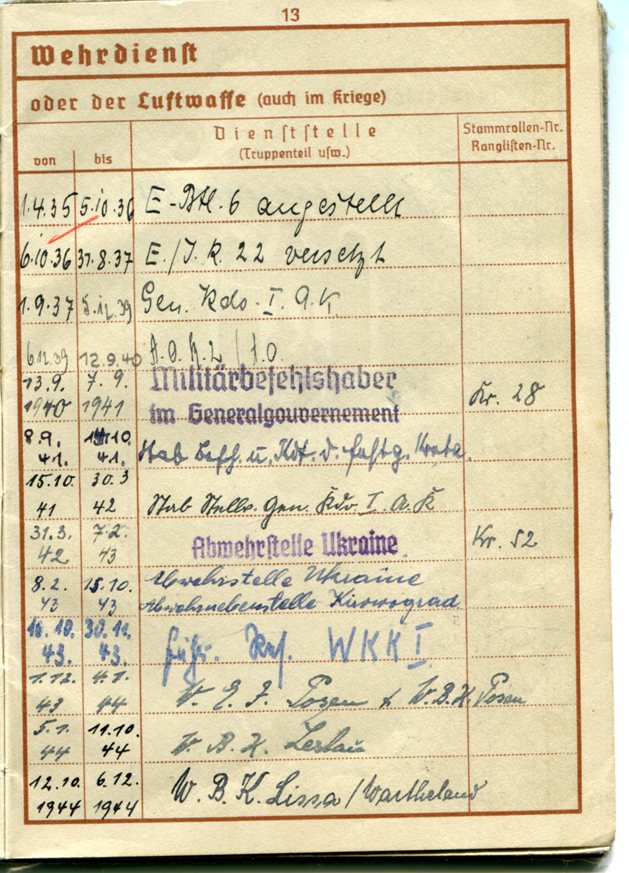 13
Wehrdienst
oder der Luftwaffe (auch im Kriege)
von bis Dienststelle (Truppenteil usw.) Stammrollen-Nr. Ranglisten-Nr.
1.4.35 5.10.36 E-Btl. 6 angestellt
6.10.36 31.8.37 E./J.R. 22 versetzt
1.9.37 5.12.39 Gen. Kdo. I. A.K.
6.12.39 12.9.40 A.O.K. 2 / I.O.
13.9. 1940 7.9. 1941 Militärbefehlshaber im Generalgouvernement Kr. 28
8.9. 41. 14.10. 41. Stab Befh. u. Kdt. d. Kreta.
15.10. 41 30.3 42 Stab Stellv. Gen. Kdo I. A. K
31.3. 42 7.2. 43 Abwehrstelle Ukraine. Kr. 52
8.2. 43 15.10. 43 Abwehrstelle Ukraine
Abwehrnebenstelle Kirowograd
16.10. 43. 30.11. 43. Führ. Res. WKK I
1.12. 43 4.1. 44 W. E. J. Posen W.B.K. Posen
5.1. 44 11.10. 44 W. B. K.
12.10. 1944 6.12. 1944 W. B. K. Lissa / Wartheland